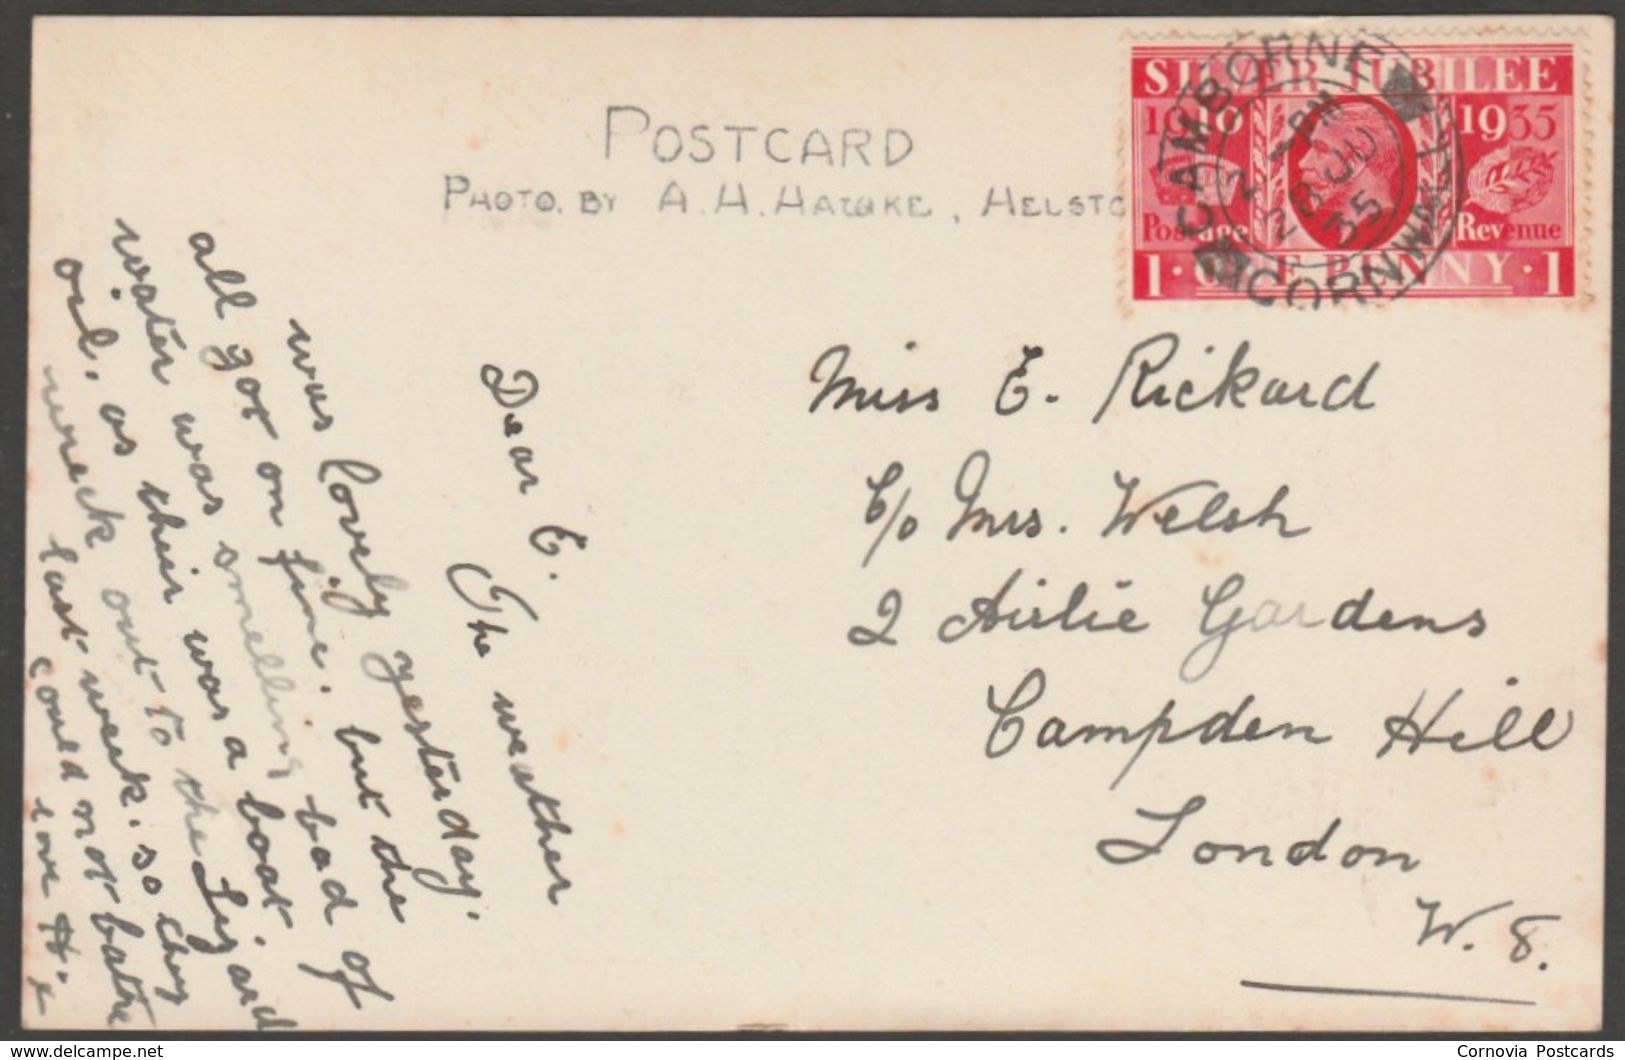 POSTCARD
PHOTO. BY A. H. HAWKE, HELSTO
SILVER JUBILEE
1910 1935
Postage Revenue
1 · ONE PENNY · 1
CAMBORNE
2 - PM
28 JU
35
CORNWALL
Dear E.
The weather
was lovely yesterday.
all got on fine. but the
water was smelling bad of
oil, as their was a boat.
wreck out to the Lizard
last week. so they
could not bathe
love H. x
Miss E. Rickard
C/o Mrs. Welsh
2 Airlie Gardens
Campden Hill
London
W. 8.
Cornovia Postcards